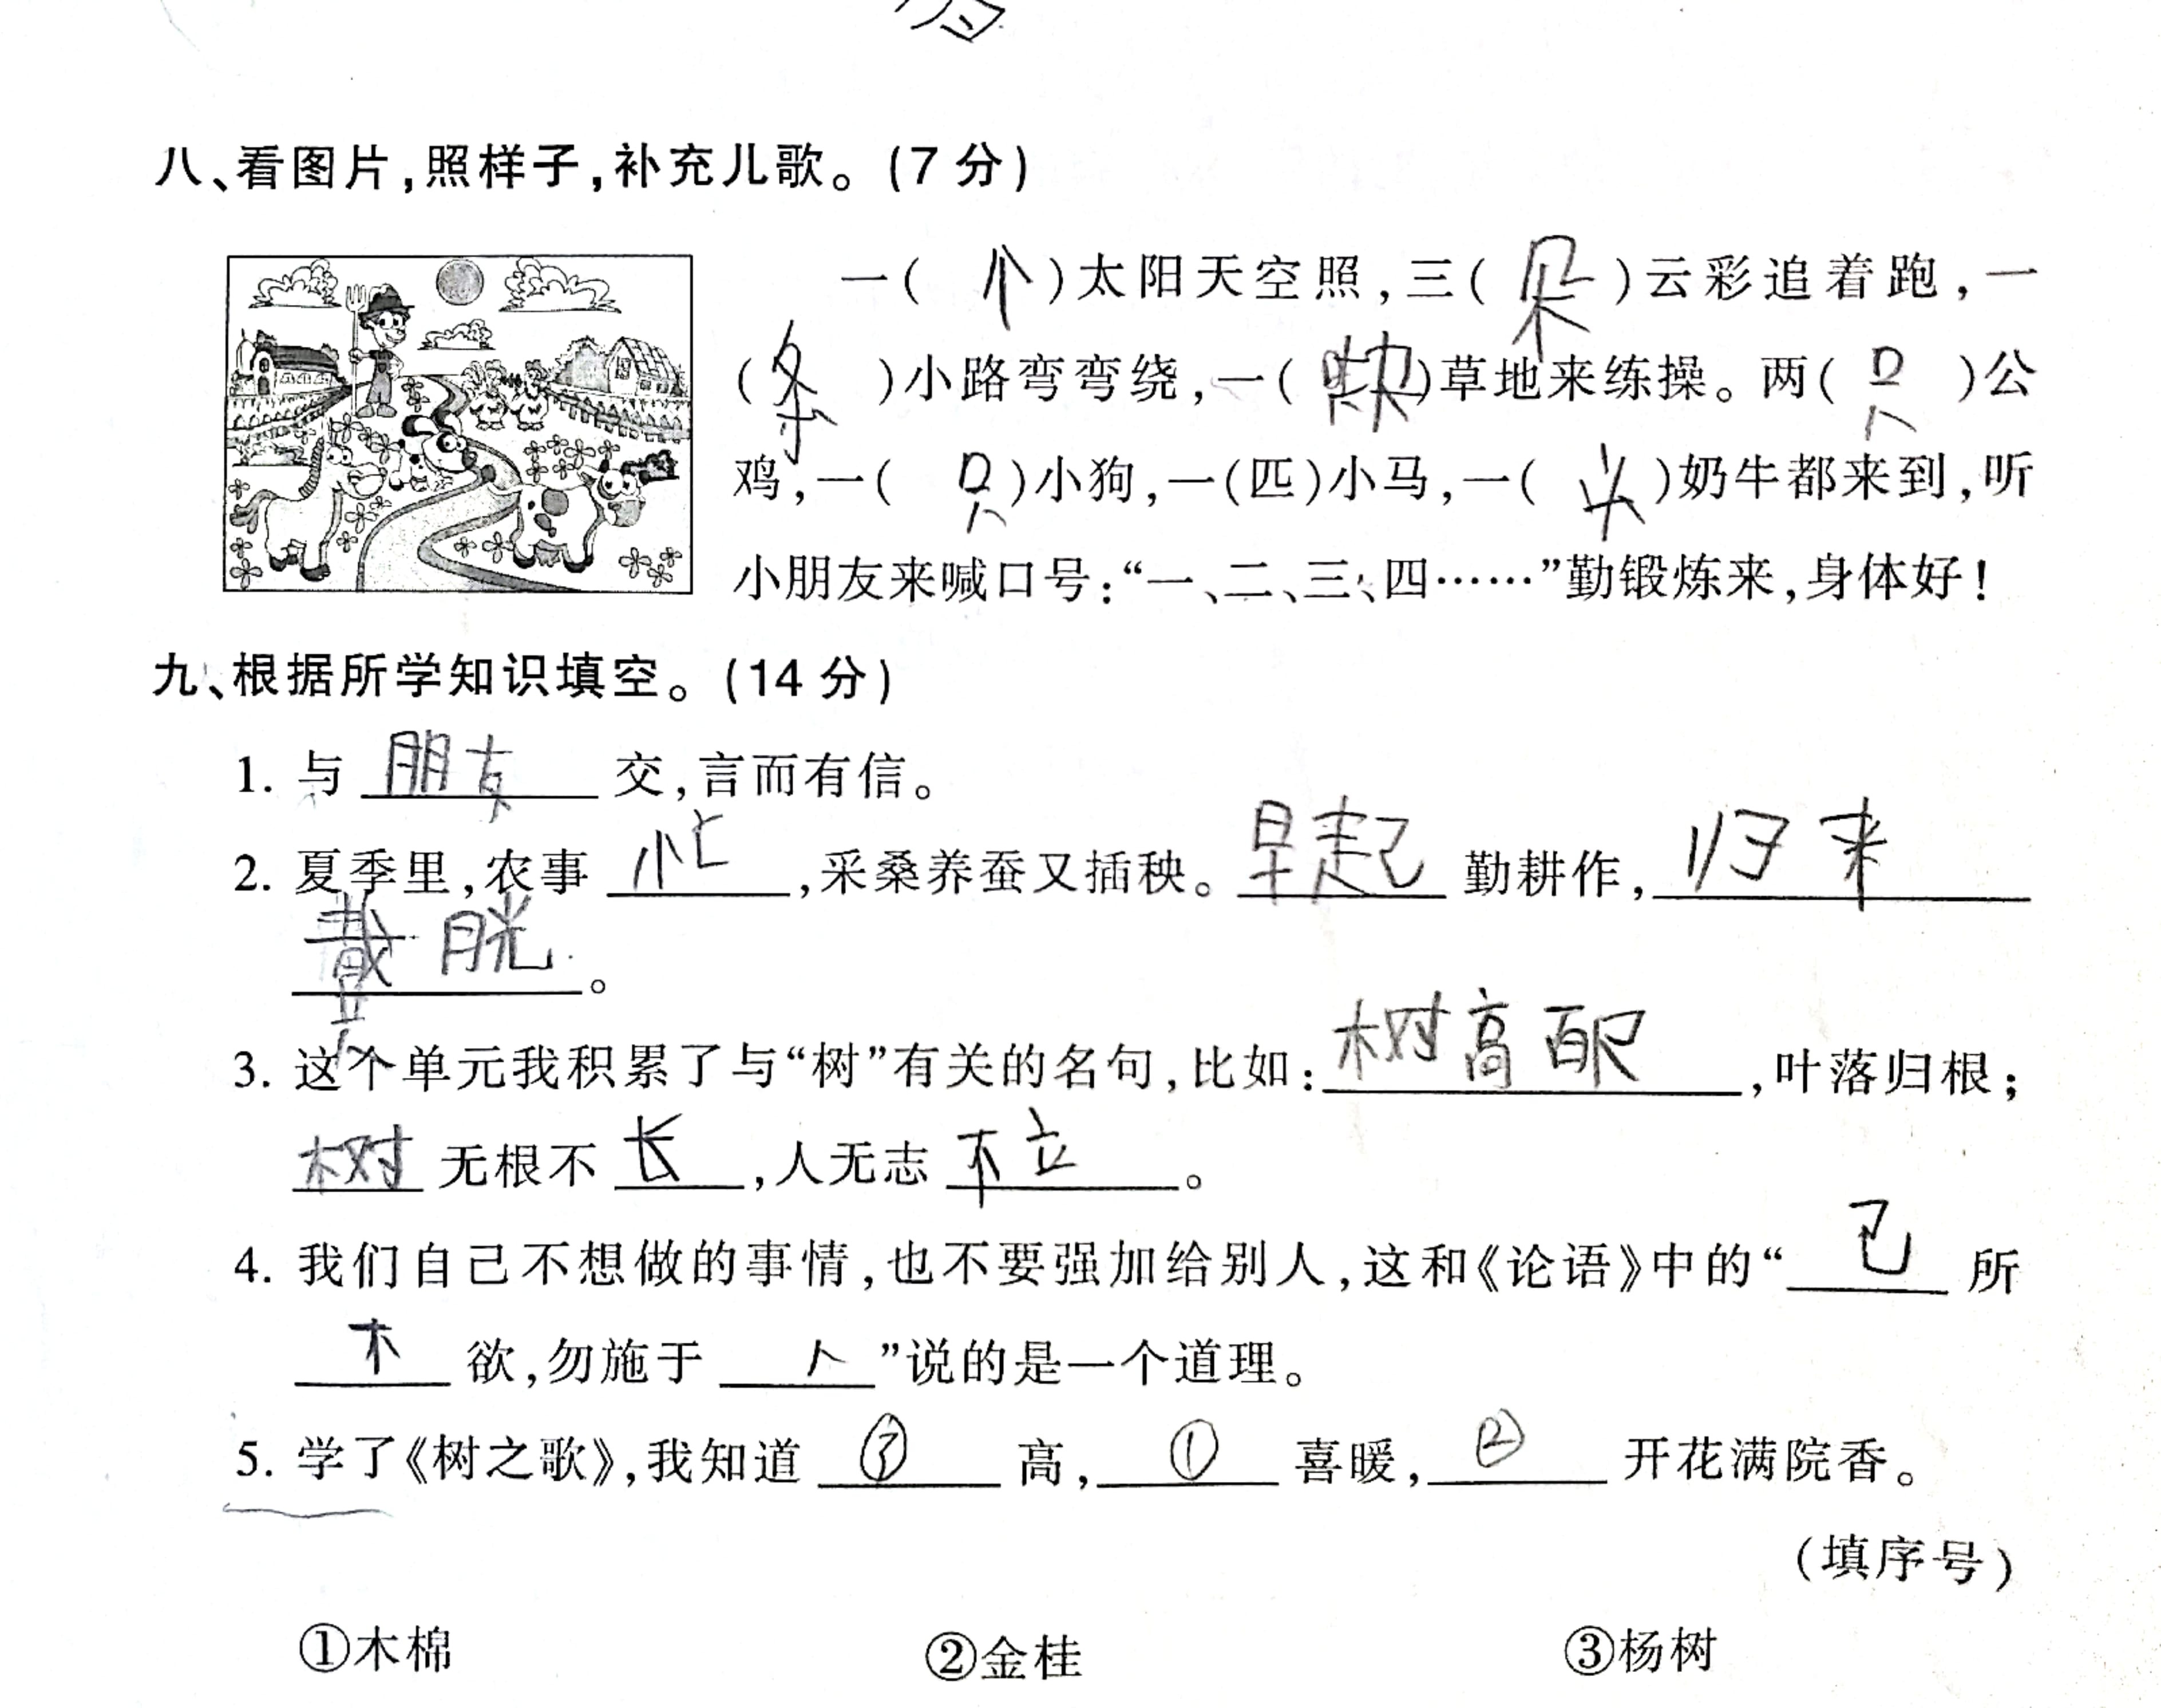 八、看图片,照样子,补充儿歌。(7分)
一(个)太阳天空照,三(朵)云彩追着跑,一
(条)小路弯弯绕,一(块)草地来练操。两(只)公
鸡,一(只)小狗,一(匹)小马,一(头)奶牛都来到,听
小朋友来喊口号:“一、二、三、四……”勤锻炼来,身体好!
九、根据所学知识填空。(14分)
1. 与 朋友 交,言而有信。
2. 夏季里,农事 忙 ,采桑养蚕又插秧。 早起 勤耕作, 归来
戴月光 。
3. 这个单元我积累了与“树”有关的名句,比如: 树高百尺 ,叶落归根;
树 无根不 长 ,人无志 不立 。
4. 我们自己不想做的事情,也不要强加给别人,这和《论语》中的“ 己 所
不 欲,勿施于 人 ”说的是一个道理。
5. 学了《树之歌》,我知道 ③ 高, ① 喜暖, ② 开花满院香。
(填序号)
①木棉 ②金桂 ③杨树